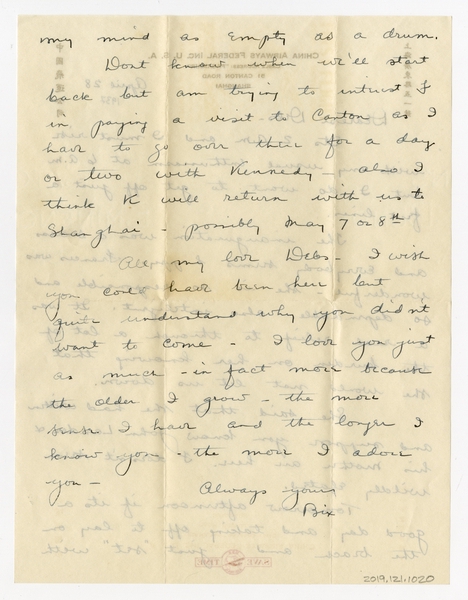 my mind as empty as a drum.
Dont know when we'll start
back but am trying to intrist J
in paying a visit to Canton as I
have to go over there for a day
or two with Kennedy - also I
think K will return with us to
Shanghai - possibly May 7 or 8th
All my love Debs - I wish
you could have been here but
quite understand why you didn't
want to come - I love you just
as much - in fact more because
the older I grow - the more
sense I have and the longer I
know you - the more I adore
you -
Always yours
Bix
2019.121.1020